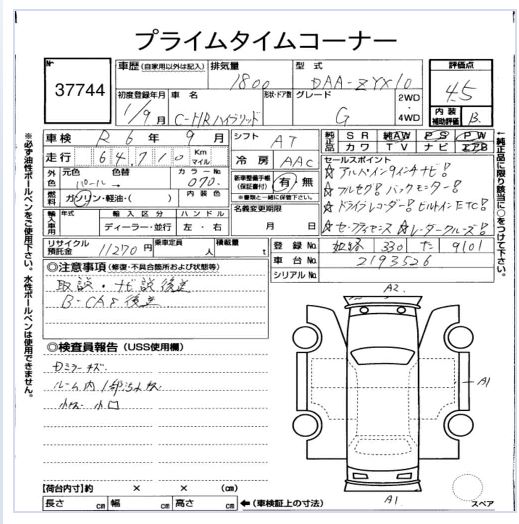 プライムタイムコーナー
No. 37744
車歴 (自家用以外は記入) 排気量 1800 型式 DAA-ZYX10 評価点 4.5
初度登録年月 1/9月 車名 C-HRハイブリッド 形状・ドア数 グレード G 2WD・4WD 内装補助評価 B
車検 R6年9月 シフト AT 純正品 SR 純AW PS PW カワ TV ナビ エアB
走行 64,710 Km マイル 冷房 AAC セールスポイント
外色 元色 パール→ 色替 カラーNo. 070 内装色 新車整備手帳(保証書付) 有・無 ※書類と一緒に保管下さい。
☆アルパイン9インチナビ!
☆フルセグ!バックモニター!
燃料 ガソリン・軽油・( )
☆ドライブレコーダー!ビルトインETC!
輸入車 年式 輸入区分 ディーラー・並行 ハンドル 左・右 名義変更期限 月 日
☆セーフティセンス☆レーダークルーズ!
リサイクル預託金 11270円 乗車定員 人 積載量 t 登録No. 姫路 330 た 9101
車台No. 2193526
シリアルNo.
◎注意事項 (修復・不具合箇所および状態等)
取説・ナビ説後送
B-CAS後送
◎検査員報告 (USS使用欄)
Dミラーキズ
ルーム内1部汚れ
小キズ 小凹
A2
A1
A1
スペア
【荷台内寸】約 × × (cm)
長さ cm 幅 cm 高さ cm ←(車検証上の寸法)
※必ず油性ボールペンをご使用下さい。水性ボールペンは使用できません。
←純正品に限り該当に○をつけて下さい。